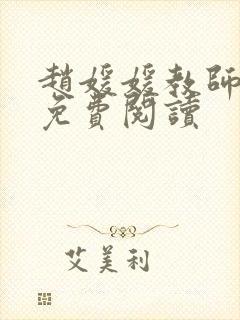 趙媛媛教師
免費閱讀
艾美利